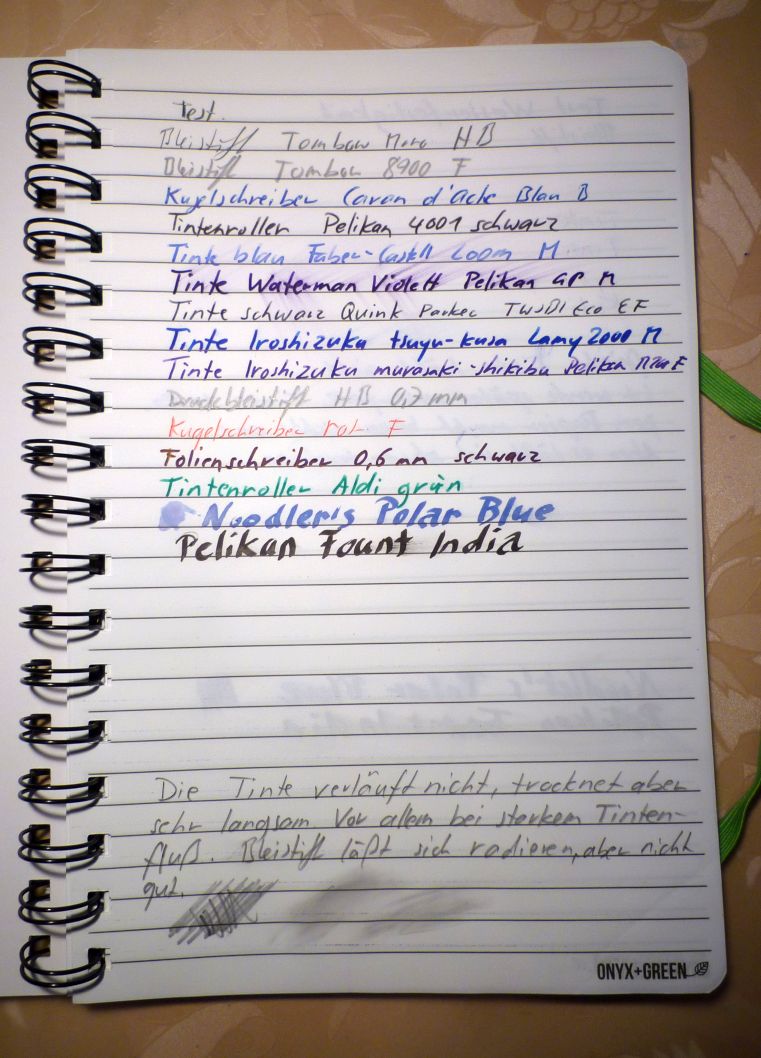 Test.
Bleistift Tombow Mono HB
Bleistift Tombow 8900 F
Kugelschreiber Caran d'Ache Blau B
Tintenroller Pelikan 4001 schwarz
Tinte blau Faber-Castell Loom M
Tinte Waterman Violett Pelikan GP M
Tinte schwarz Quink Parker TWSBI Eco EF
Tinte Iroshizuku tsuyu-kusa Lamy 2000 M
Tinte Iroshizuku murasaki-shikibu Pelikan F
Druckbleistift HB 0,7 mm
Kugelschreiber rot F
Folienschreiber 0,6 mm schwarz
Tintenroller Aldi grün
Noodler's Polar Blue
Pelikan Fount India
Die Tinte verläuft nicht, trocknet aber
sehr langsam. Vor allem bei starkem Tinten-
fluß. Bleistift läßt sich radieren, aber nicht
gut.
ONYX+GREEN